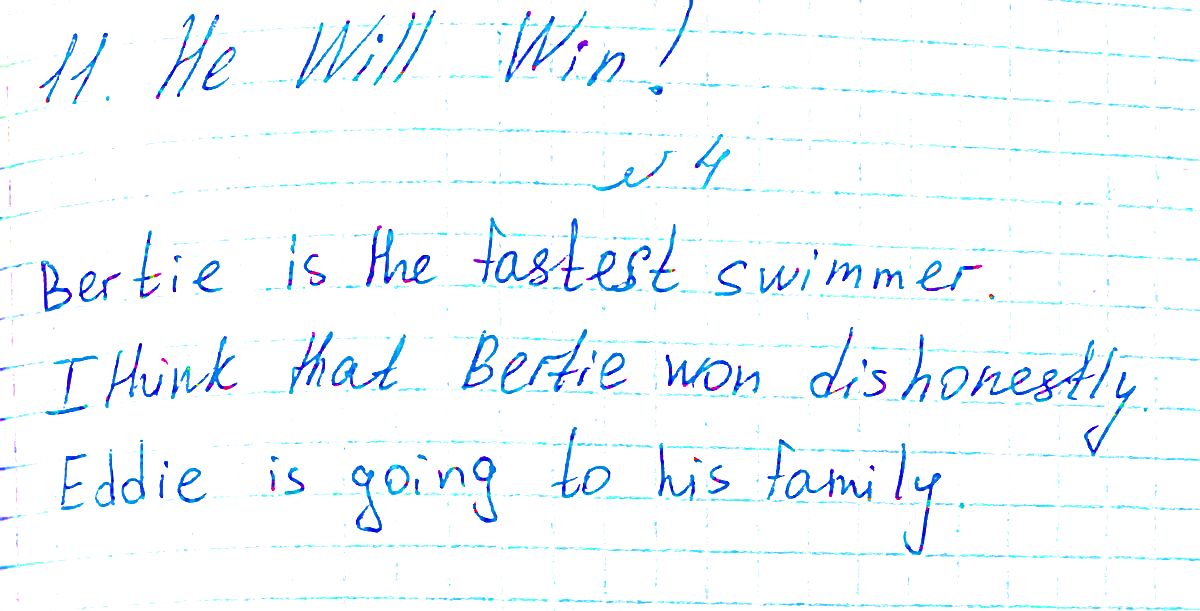 11. He Will Win!
№ 4
Bertie is the fastest swimmer.
I think that Bertie won dishonestly.
Eddie is going to his family.